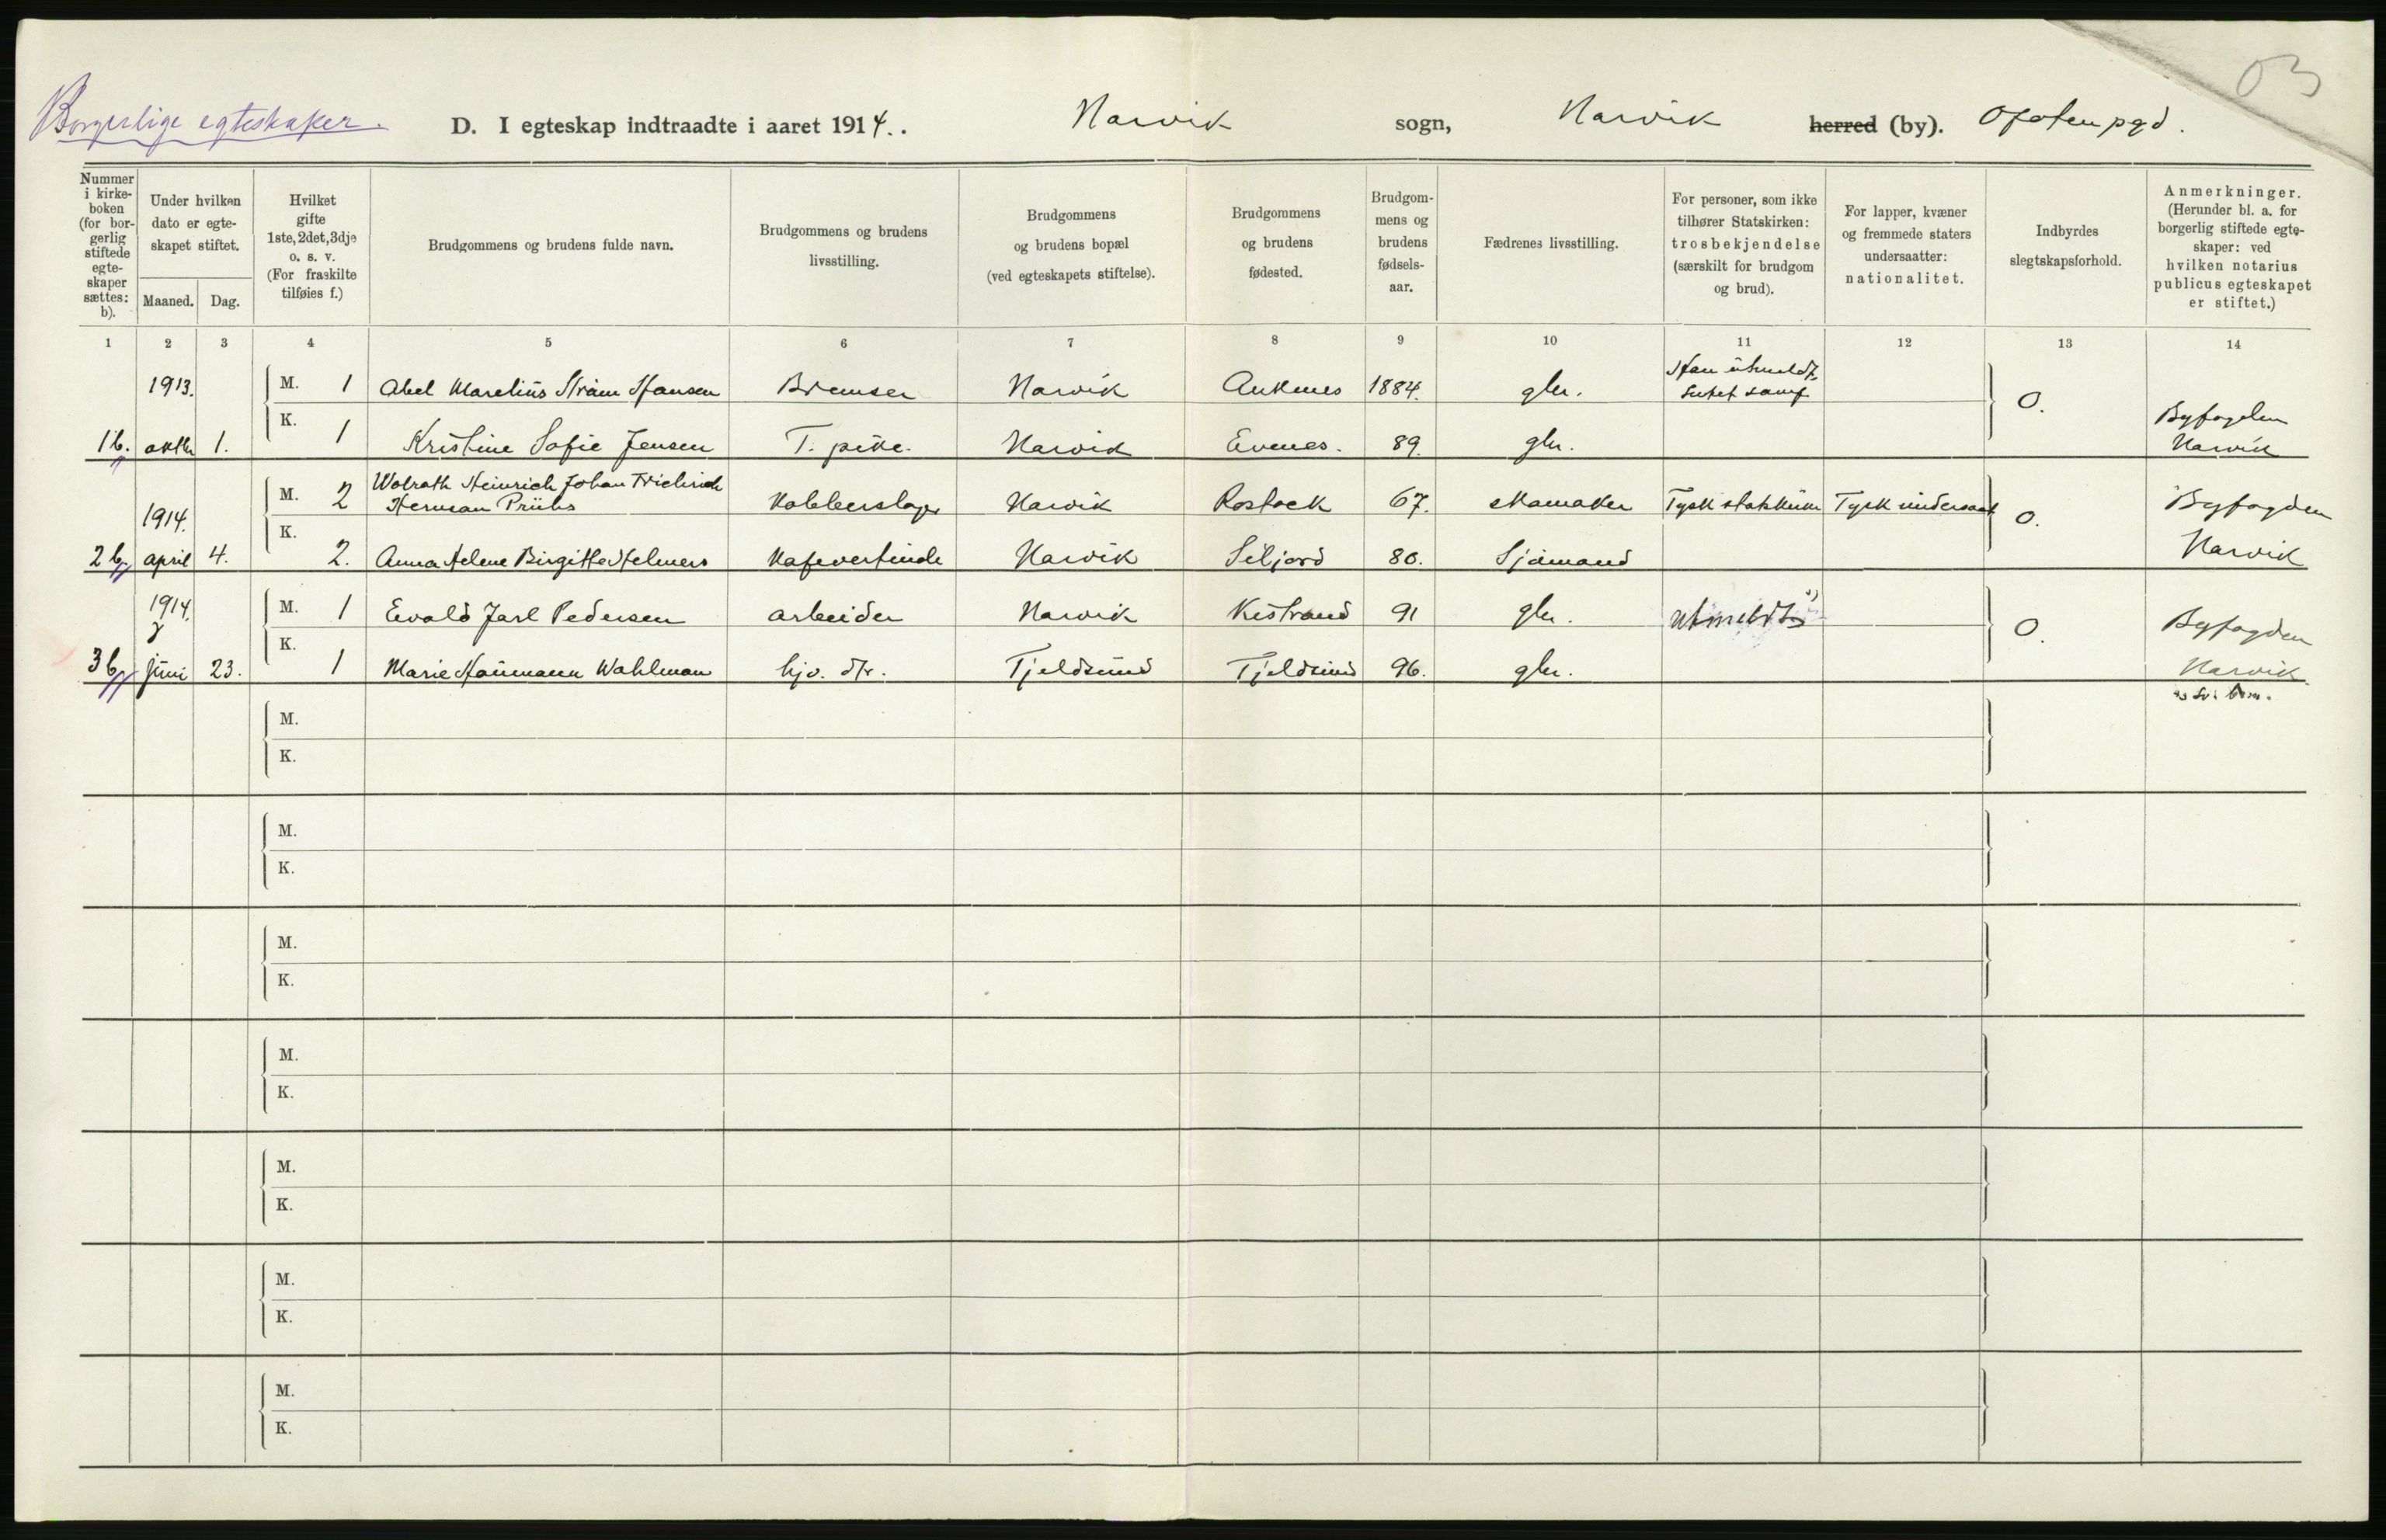 03
Borgerlige egteskaper.
D. I egteskap indtraadte i aaret 1914. . Narvik sogn, Narvik herred (by). Ofoten pgd.
Nummer i kirke-boken (for bor-gerlig stiftede egte-skaper sættes: b).
Under hvilken dato er egte-skapet stiftet.
Maaned. Dag.
Hvilket gifte 1ste, 2det, 3dje o. s. v. (For fraskilte tilføies f.)
Brudgommens og brudens fulde navn.
Brudgommens og brudens livsstilling.
Brudgommens og brudens bopæl (ved egteskapets stiftelse).
Brudgommens og brudens fødested.
Brudgom-mens og brudens fødsels-aar.
Fædrenes livsstilling.
For personer, som ikke tilhører Statskirken: trosbekjendelse (særskilt for brudgom og brud).
For lapper, kvæner og fremmede staters undersaatter: nationalitet.
Indbyrdes slegtskapsforhold.
Anmerkninger. (Herunder bl. a. for borgerlig stiftede egte-skaper: ved hvilken notarius publicus egteskapet er stiftet.)
1 2 3 4 5 6 7 8 9 10 11 12 13 14
1913. M. 1 Abel Marelius Strøm Hansen Bremser Narvik Ankenes 1884. gbr. Han utmeldt, intet samf. 0.
1b. oktbr 1. K. 1 Kristine Sofie Jensen T. pike. Narvik Evenes. 89. gbr. Byfogden Narvik
1914. M. 2 Wolrath Heinrich Johan Friedrich Herman Prühs Kobberslager Narvik Rostock 67. skomaker Tysk statskirke Tysk undersaat 0. Byfogden
2b. april 4. K. 2. Anna Helene Birgitte Helmers Kafevertinde Narvik Seljord 80. Sjømand Narvik
1914. M. 1 Evald Jarl Pedersen arbeider Narvik Kistrand 91 gbr. utmeldt 0. Byfogden
3b. juni 23. K. 1 Marie Haumann Wahlman hjv. dtr. Tjeldsund Tjeldsund 96. gbr. Narvik.
M.
K.
M.
K.
M.
K.
M.
K.
M.
K.
M.
K.
M.
K.